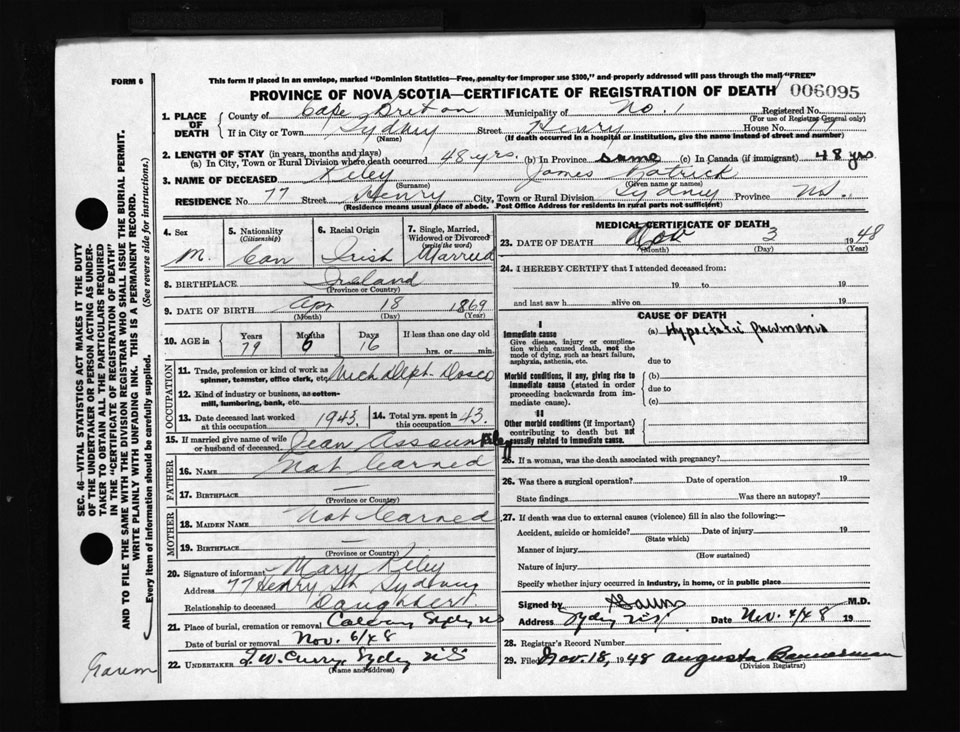 FORM 6
This form if placed in an envelope, marked "Dominion Statistics—Free, penalty for improper use $300," and properly addressed will pass through the mail "FREE"
PROVINCE OF NOVA SCOTIA—CERTIFICATE OF REGISTRATION OF DEATH 006095
1. PLACE OF DEATH
County of Cape Breton Municipality of No. 1 Registered No.
(For use of Registrar General only)
If in City or Town Sydney Street Henry House No. 77
(Name) (If death occurred in a hospital or institution, give the name instead of street and number)
2. LENGTH OF STAY (in years, months and days)
(a) In City, Town or Rural Division where death occurred 48 yrs. (b) In Province same (c) In Canada (if immigrant) 48 yrs
3. NAME OF DECEASED Kiley James Patrick
(Surname) (Given name or names)
RESIDENCE No. 77 Street Henry City, Town or Rural Division Sydney Province N.S.
(Residence means usual place of abode. Post Office Address for residents in rural parts not sufficient)
4. Sex M.
5. Nationality (Citizenship) Can
6. Racial Origin Irish
7. Single, Married, Widowed or Divorced (write the word) Married
8. BIRTHPLACE Ireland
(Province or Country)
9. DATE OF BIRTH Apr 18 1869
(Month) (Day) (Year)
10. AGE in Years 79 Months 6 Days 16 If less than one day old
hrs. or min.
OCCUPATION
11. Trade, profession or kind of work as spinner, teamster, office clerk, etc. Mech Dept. Dosco
12. Kind of industry or business, as cotton-mill, lumbering, bank, etc.
13. Date deceased last worked at this occupation 1943
14. Total yrs. spent in this occupation 43
15. If married give name of wife or husband of deceased Jean
FATHER
16. Name Not learned
17. Birthplace —
(Province or Country)
MOTHER
18. Maiden Name Not learned
19. Birthplace —
(Province or Country)
20. Signature of informant Mary Kiley
Address 77 Henry St Sydney
Relationship to deceased Daughter
21. Place of burial, cremation or removal Calvary Sydney NS
Date of burial or removal Nov. 6/48
22. UNDERTAKER F.W. Curry, Sydney N.S
(Name and address)
MEDICAL CERTIFICATE OF DEATH
23. DATE OF DEATH Nov 3 1948
(Month) (Day) (Year)
24. I HEREBY CERTIFY that I attended deceased from:
19 to 19
and last saw h alive on 19
CAUSE OF DEATH
I
Immediate cause
Give disease, injury or complication which caused death, not the mode of dying, such as heart failure, asphyxia, asthenia, etc.
(a) Hypostatic Pneumonia
due to
Morbid conditions, if any, giving rise to immediate cause (stated in order proceeding backwards from immediate cause).
(b)
due to
(c)
II
Other morbid conditions (if important) contributing to death but not causally related to immediate cause.
25. If a woman, was the death associated with pregnancy?
26. Was there a surgical operation? Date of operation 19
State findings Was there an autopsy?
27. If death was due to external causes (violence) fill in also the following:—
Accident, suicide or homicide? Date of injury 19
(State which)
Manner of injury
(How sustained)
Nature of injury
Specify whether injury occurred in industry, in home, or in public place
Signed by M.D.
Address Sydney N.S. Date Nov. 4/48 19
28. Registrar's Record Number
29. Filed Nov. 18, 1948 Augusta Bannerman
(Division Registrar)
SEC. 46—VITAL STATISTICS ACT MAKES IT THE DUTY
OF THE UNDERTAKER OR PERSON ACTING AS UNDER-
TAKER TO OBTAIN ALL THE PARTICULARS REQUIRED
IN THE "CERTIFICATE OF REGISTRATION OF DEATH"
AND TO FILE THE SAME WITH THE DIVISION REGISTRAR WHO SHALL ISSUE THE BURIAL PERMIT.
WRITE PLAINLY WITH UNFADING INK. THIS IS A PERMANENT RECORD.
Every item of information should be carefully supplied. (See reverse side for instructions.)